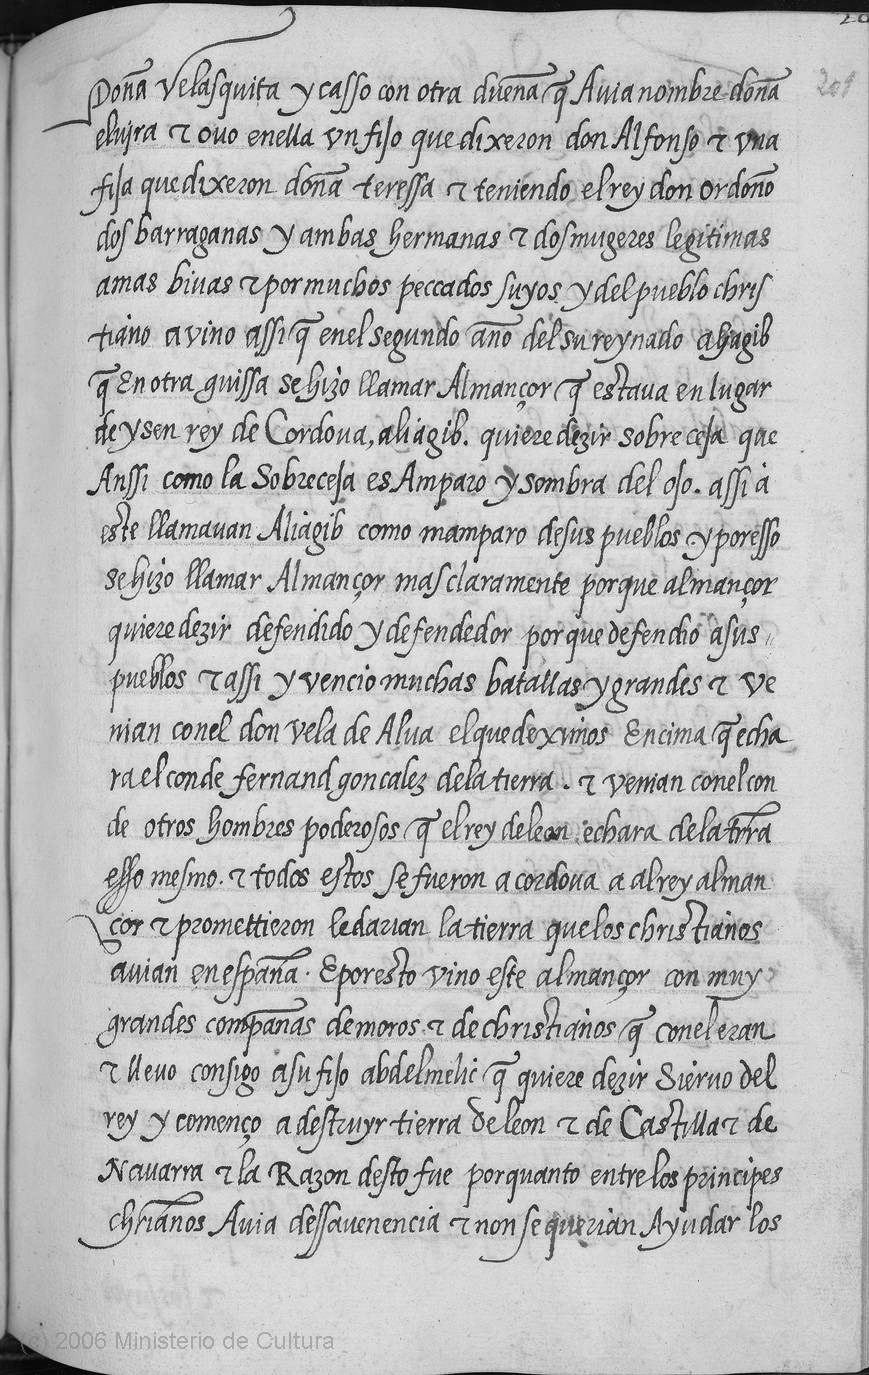 209
Doña Velasquita y casso con otra dueña q̃ Auia nombre doña
eluira τ ouo enella vn fijo que dixeron don Alfonso τ vna
fija que dixeron doña teressa τ teniendo el rey don ordoño
dos barraganas y ambas hermanas τ dos mugeres legitimas
amas biuas τ por muchos peccados suyos y del pueblo chris
tiano avino assi q̃ enel segundo año del su reynado alhagib
q̃ En otra guissa se hizo llamar Almançor q̃ estaua en lugar
de ysen rey de Cordoua, aliagib. quiere dezir sobre ceja que
Anssi como la Sobreceja es Amparo y sombra del ojo. assi à
este llamauan Aliagib como mamparo desus pueblos y poresso
se hizo llamar Almançor mas claramente porque almançor
quiere dezir defendido y defendedor porque defendio asus
pueblos τ assi y vencio muchas batallas y grandes τ ve
nian conel don vela de Alua el que deximos Encima q̃ echa
ra el conde fernand goncalez dela tierra. τ venian conel con
de otros hombres poderosos q̃ el rey de leon echara dela trr̃a
esso mesmo. τ todos estos se fueron a cordoua a al rey alman
çor τ promettieron le darian la tierra que los christianos
auian en españa. E por esto vino este almançor con muy
grandes compañas de moros τ de christianos q̃ conel eran
τ lleuo consigo asu fijo abdelmelic q̃ quiere dezir Sieruo del
rey y començo a destruyr tierra de leon τ de Castilla τ de
Nauarra τ la Razon desto fue por quanto entre los principes
chr̃ianos Auia dessauenencia τ non se querian Ayudar los
(c) 2006 Ministerio de Cultura